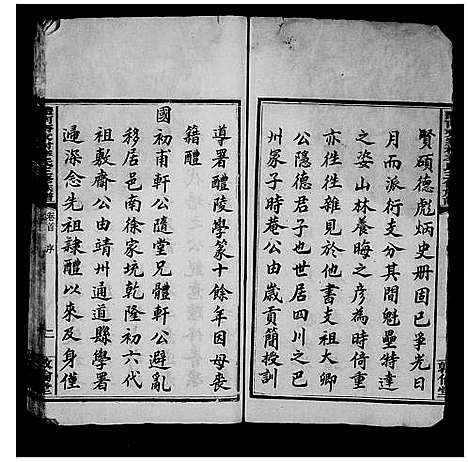 賢碩德彪炳史册固已爭光日
月而派衍支分其間魁壘特達
之姿山林養晦之彦為時倚重
亦徃徃雜見於他書支祖大卿
公隱德君子也世居四川之巴
州眾子時菴公由歲貢簡授訓
導署醴陵學篆十餘年因母喪
籍醴
國初甫軒公隨堂兄體軒公避亂
移居邑南徐家垸乾隆初六代
祖敷齋公由靖州通道縣學署
通滌念先祖隷醴以來及身僅
卷首 序
二
敦倫堂